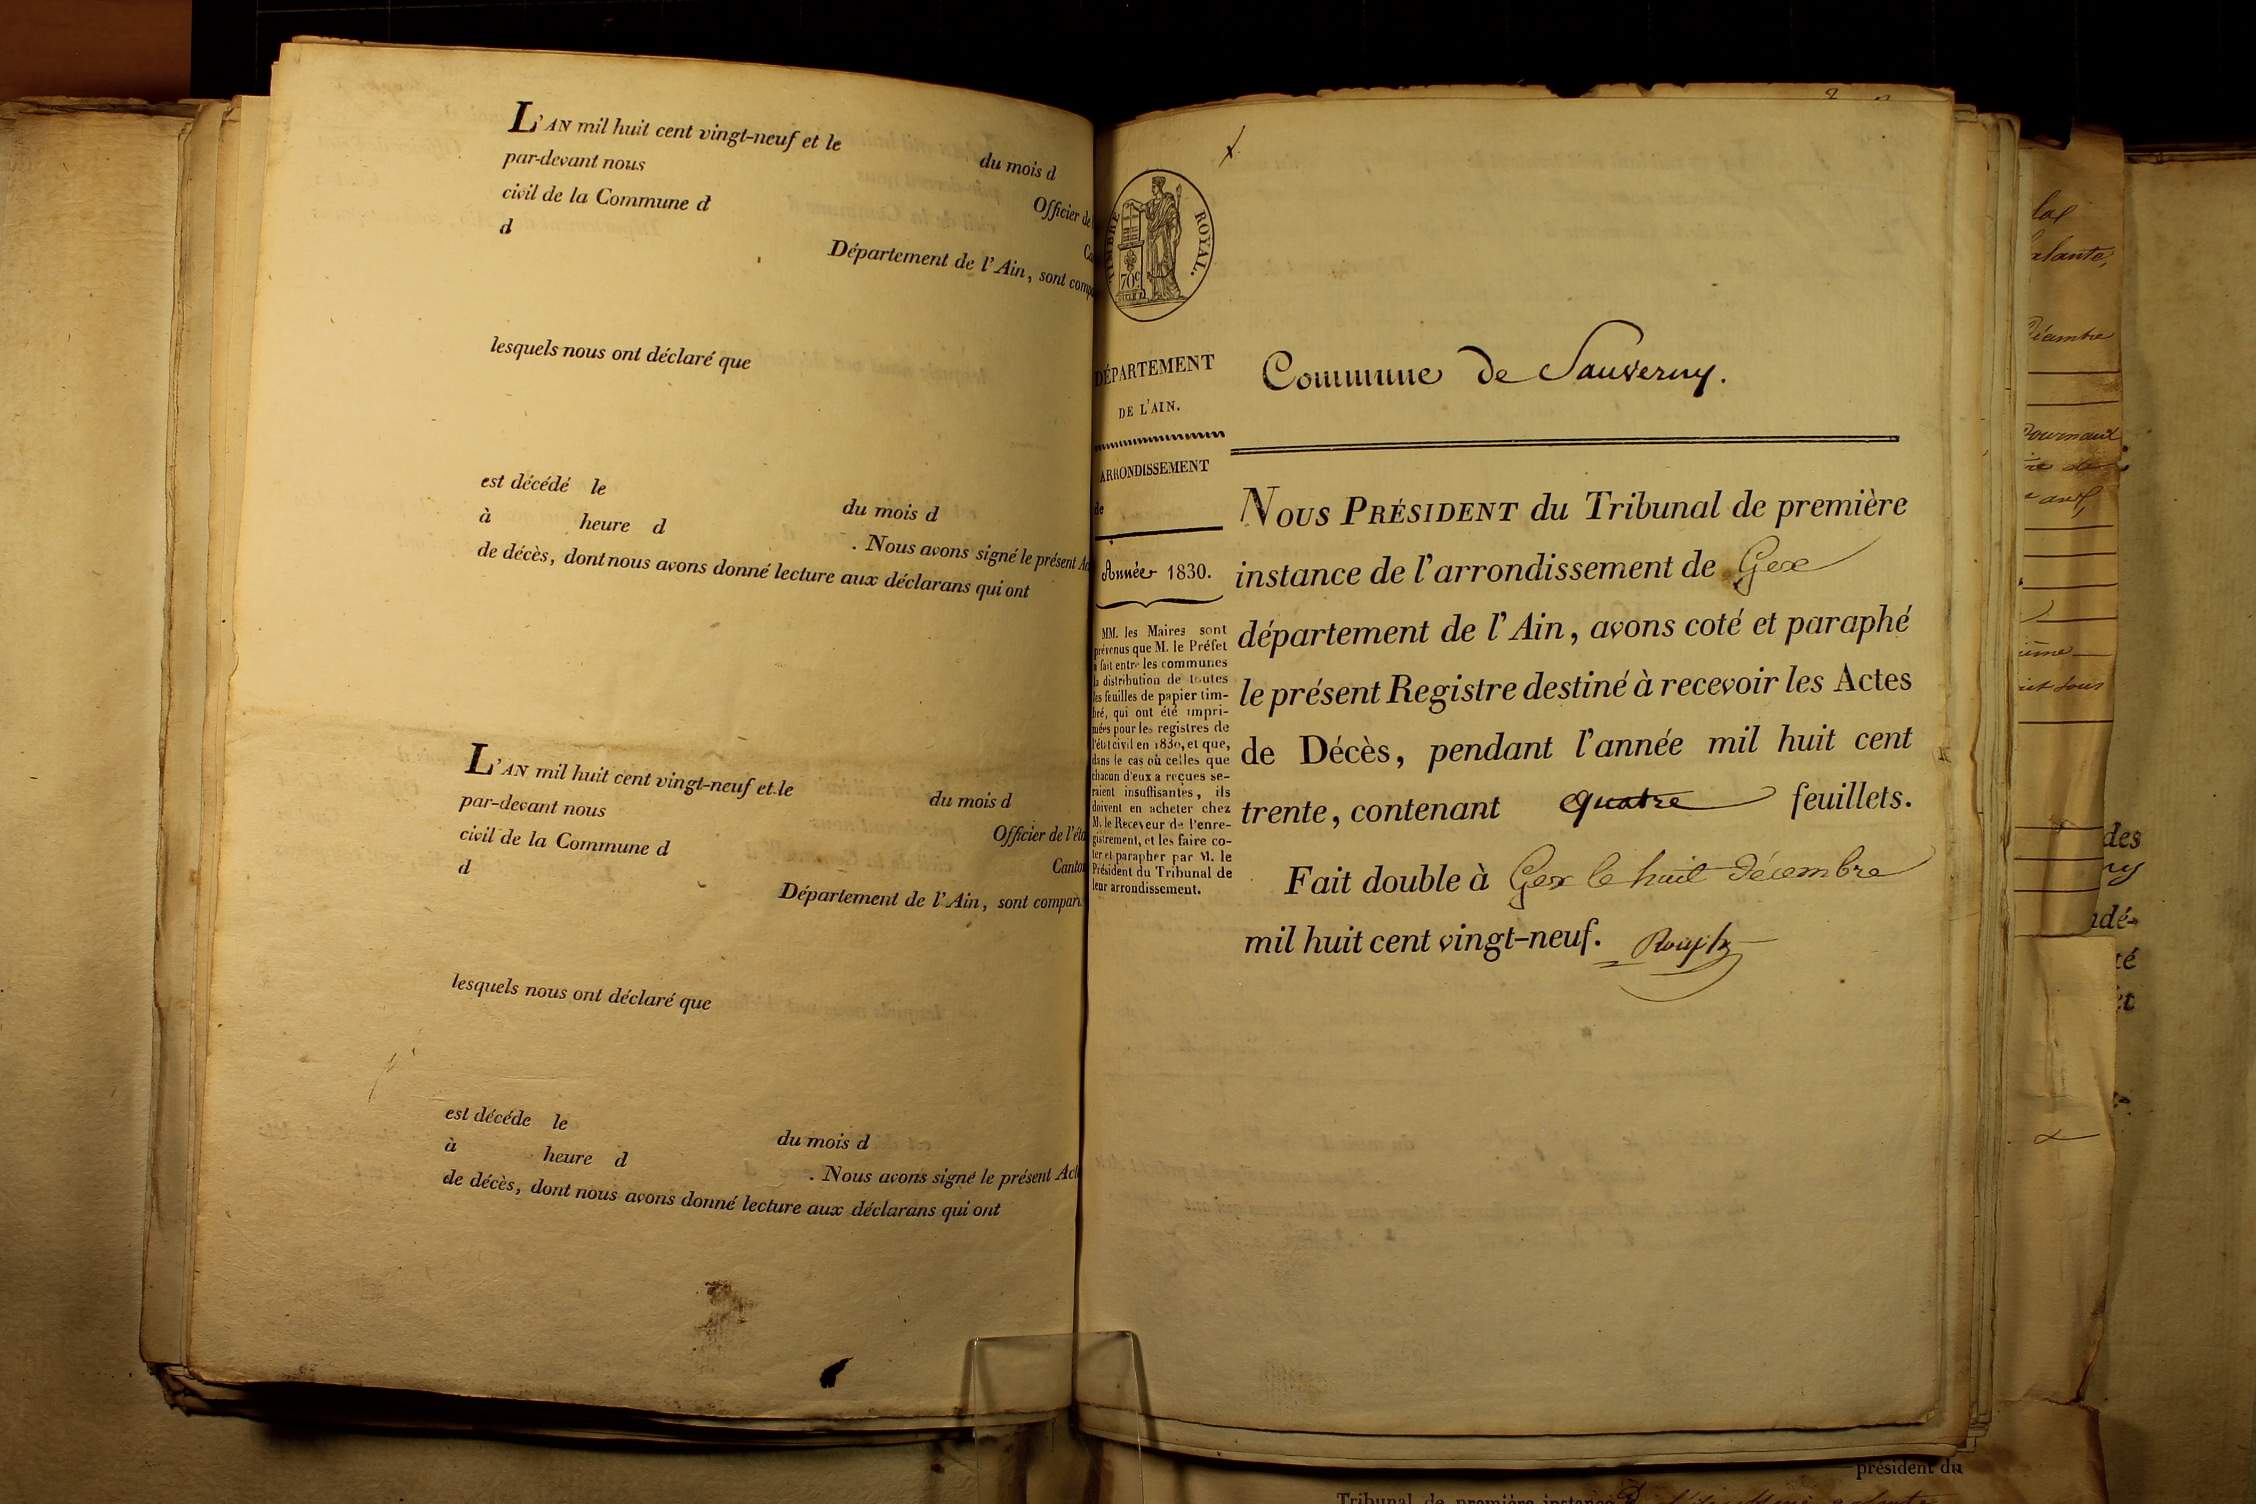 L'AN mil huit cent vingt-neuf et le du mois d
par-devant nous Officier de l
civil de la Commune d Ca
d Département de l'Ain, sont compa
lesquels nous ont déclaré que
est décédé le du mois d
à heure d . Nous avons signé le présent Ac
de décès, dont nous avons donné lecture aux déclarans qui ont
L'AN mil huit cent vingt-neuf et le du mois d
par-devant nous Officier de l'éta
civil de la Commune d Canton
d Département de l'Ain, sont comparu
lesquels nous ont déclaré que
est décéde le du mois d
à heure d . Nous avons signé le présent Acte
de décès, dont nous avons donné lecture aux déclarans qui ont
TIMBRE ROYAL.
70c
DÉPARTEMENT
DE L'AIN.
ARRONDISSEMENT
de
Année 1830.
MM. les Maires sont
prévenus que M. le Préfet
a fait entre les communes
la distribution de toutes
les feuilles de papier tim-
bré, qui ont été impri-
mées pour les registres de
l'état civil en 1830, et que,
dans le cas où celles que
chacun d'eux a reçues se-
raient insuffisantes, ils
doivent en acheter chez
M. le Receveur de l'enre-
gistrement, et les faire co-
ter et parapher par M. le
Président du Tribunal de
leur arrondissement.
Commune de Sauverny.
NOUS PRÉSIDENT du Tribunal de première
instance de l'arrondissement de Gex
département de l'Ain, avons coté et paraphé
le présent Registre destiné à recevoir les Actes
de Décès, pendant l'année mil huit cent
trente, contenant quatre feuillets.
Fait double à Gex le huit Décembre
mil huit cent vingt-neuf.
des
ny
ndé-
té
et
président du
Tribunal de première instance